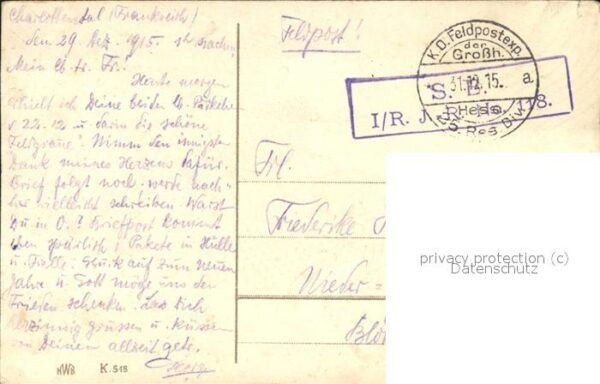 Charlottental (Frankreich)
den 29. Dez. 1915.
Mein lb. tr. Fr.!
Heute morgen
erhielt ich Deine beiden lb. Päckchen
v 22.12 u darin die schöne
Nimm den innigsten
Dank meines Herzens dafür.
Brief folgt noch. werde nach-
her vielleicht schreiben. Warst
Du in O.? Briefpost kommt
eben spärlich; Pakete in Hülle
u. Fülle. Glück auf zum neuen
Jahre u. Gott möge uns den
Frieden schenken. Lass Dich
herzinnig grüssen u. küssen
von Deinem allzeit getr.
Georg
Feldpost!
K.D. Feldpostexp.
der
Großh.
31.12.15. a
Hess.
25. Res. Div.
S. B.
I/R. J. R. No. 118.
Frl.
Friederike
Nieder=
privacy protection (c)
Datenschutz
NWB K. 518